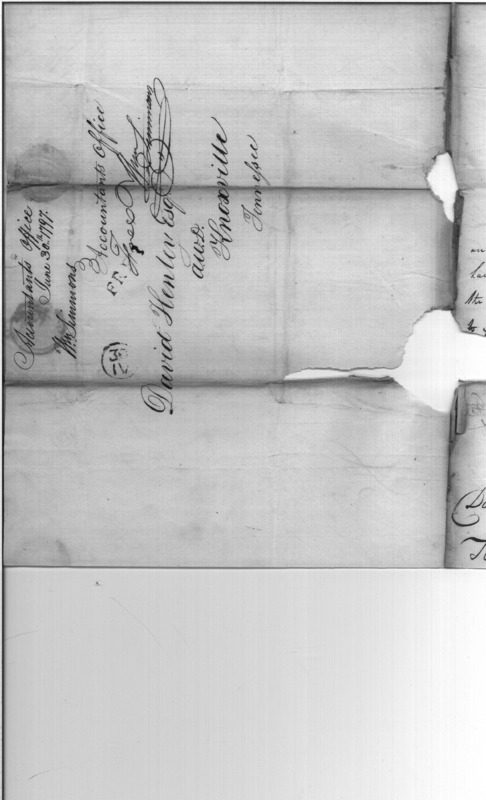 Accountants Office
June 30th 1797.
Wm Simmons
Accountants Office
FREE
Wm Simmons
David Henley Esqr.
a.W.D.
Knoxville
Tennessee
an
the
to